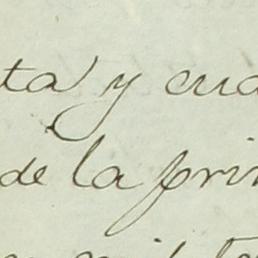 ta y cua
de la prin